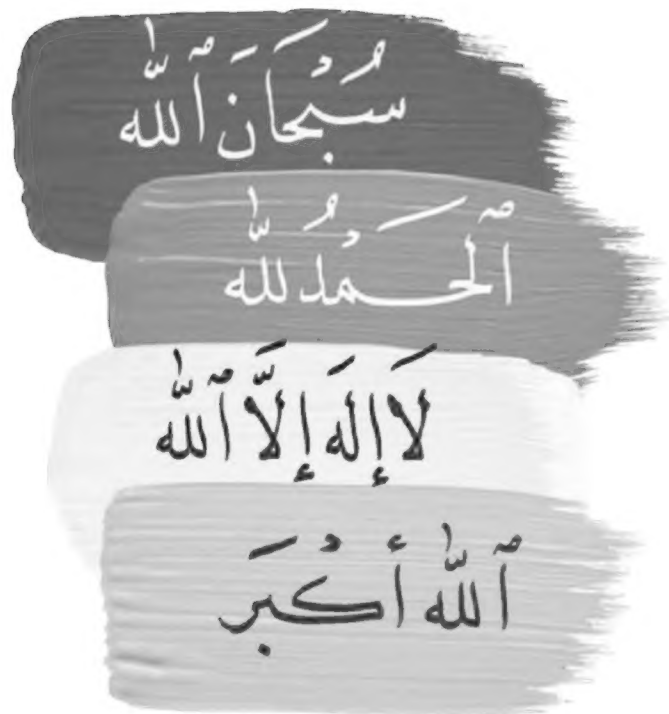 سُبْحَانَ ٱللّٰه
ٱلْحَمْدُ لِلّٰه
لَا إِلَهَ إِلَّا ٱللّٰه
ٱللّٰه أَكْبَر